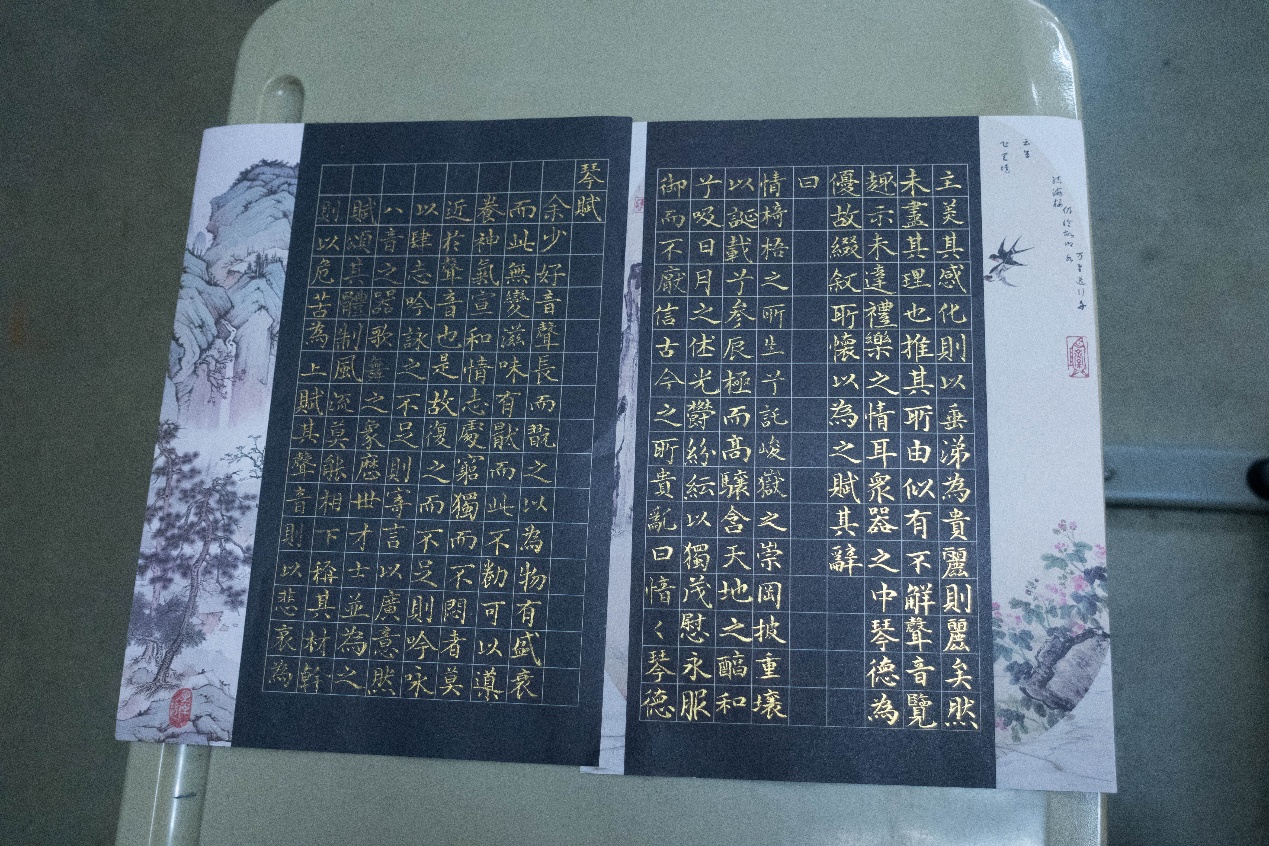 琴賦
余少好音聲長而翫之以為物有盛衰
而此無變滋味有猒而此不勌可以導
養神氣宣和情志處窮獨而不悶者莫
近於聲音也是故復之而不足則吟咏
以肆志吟詠之不足則寄言以廣意然
八音之器歌舞之象歷世才士並為之
賦頌其體制風流莫能相下稱其材幹
則以危苦為上賦其聲音則以悲哀為
主美其感化則以垂涕為貴麗則麗矣然
未盡其理也推其所由似有不解聲音覽
趣示未達禮樂之情耳衆器之中琴德為
優故綴叙所懷以為之賦其辭
曰
情椅格之所生兮託峻嶽之崇岡披重壤
以誕載兮参辰極而高驤含天地之醕和
兮吸日月之休光鬱紛紜以獨茂慰永服
御而不厭信古今之所貴亂曰愔々琴德